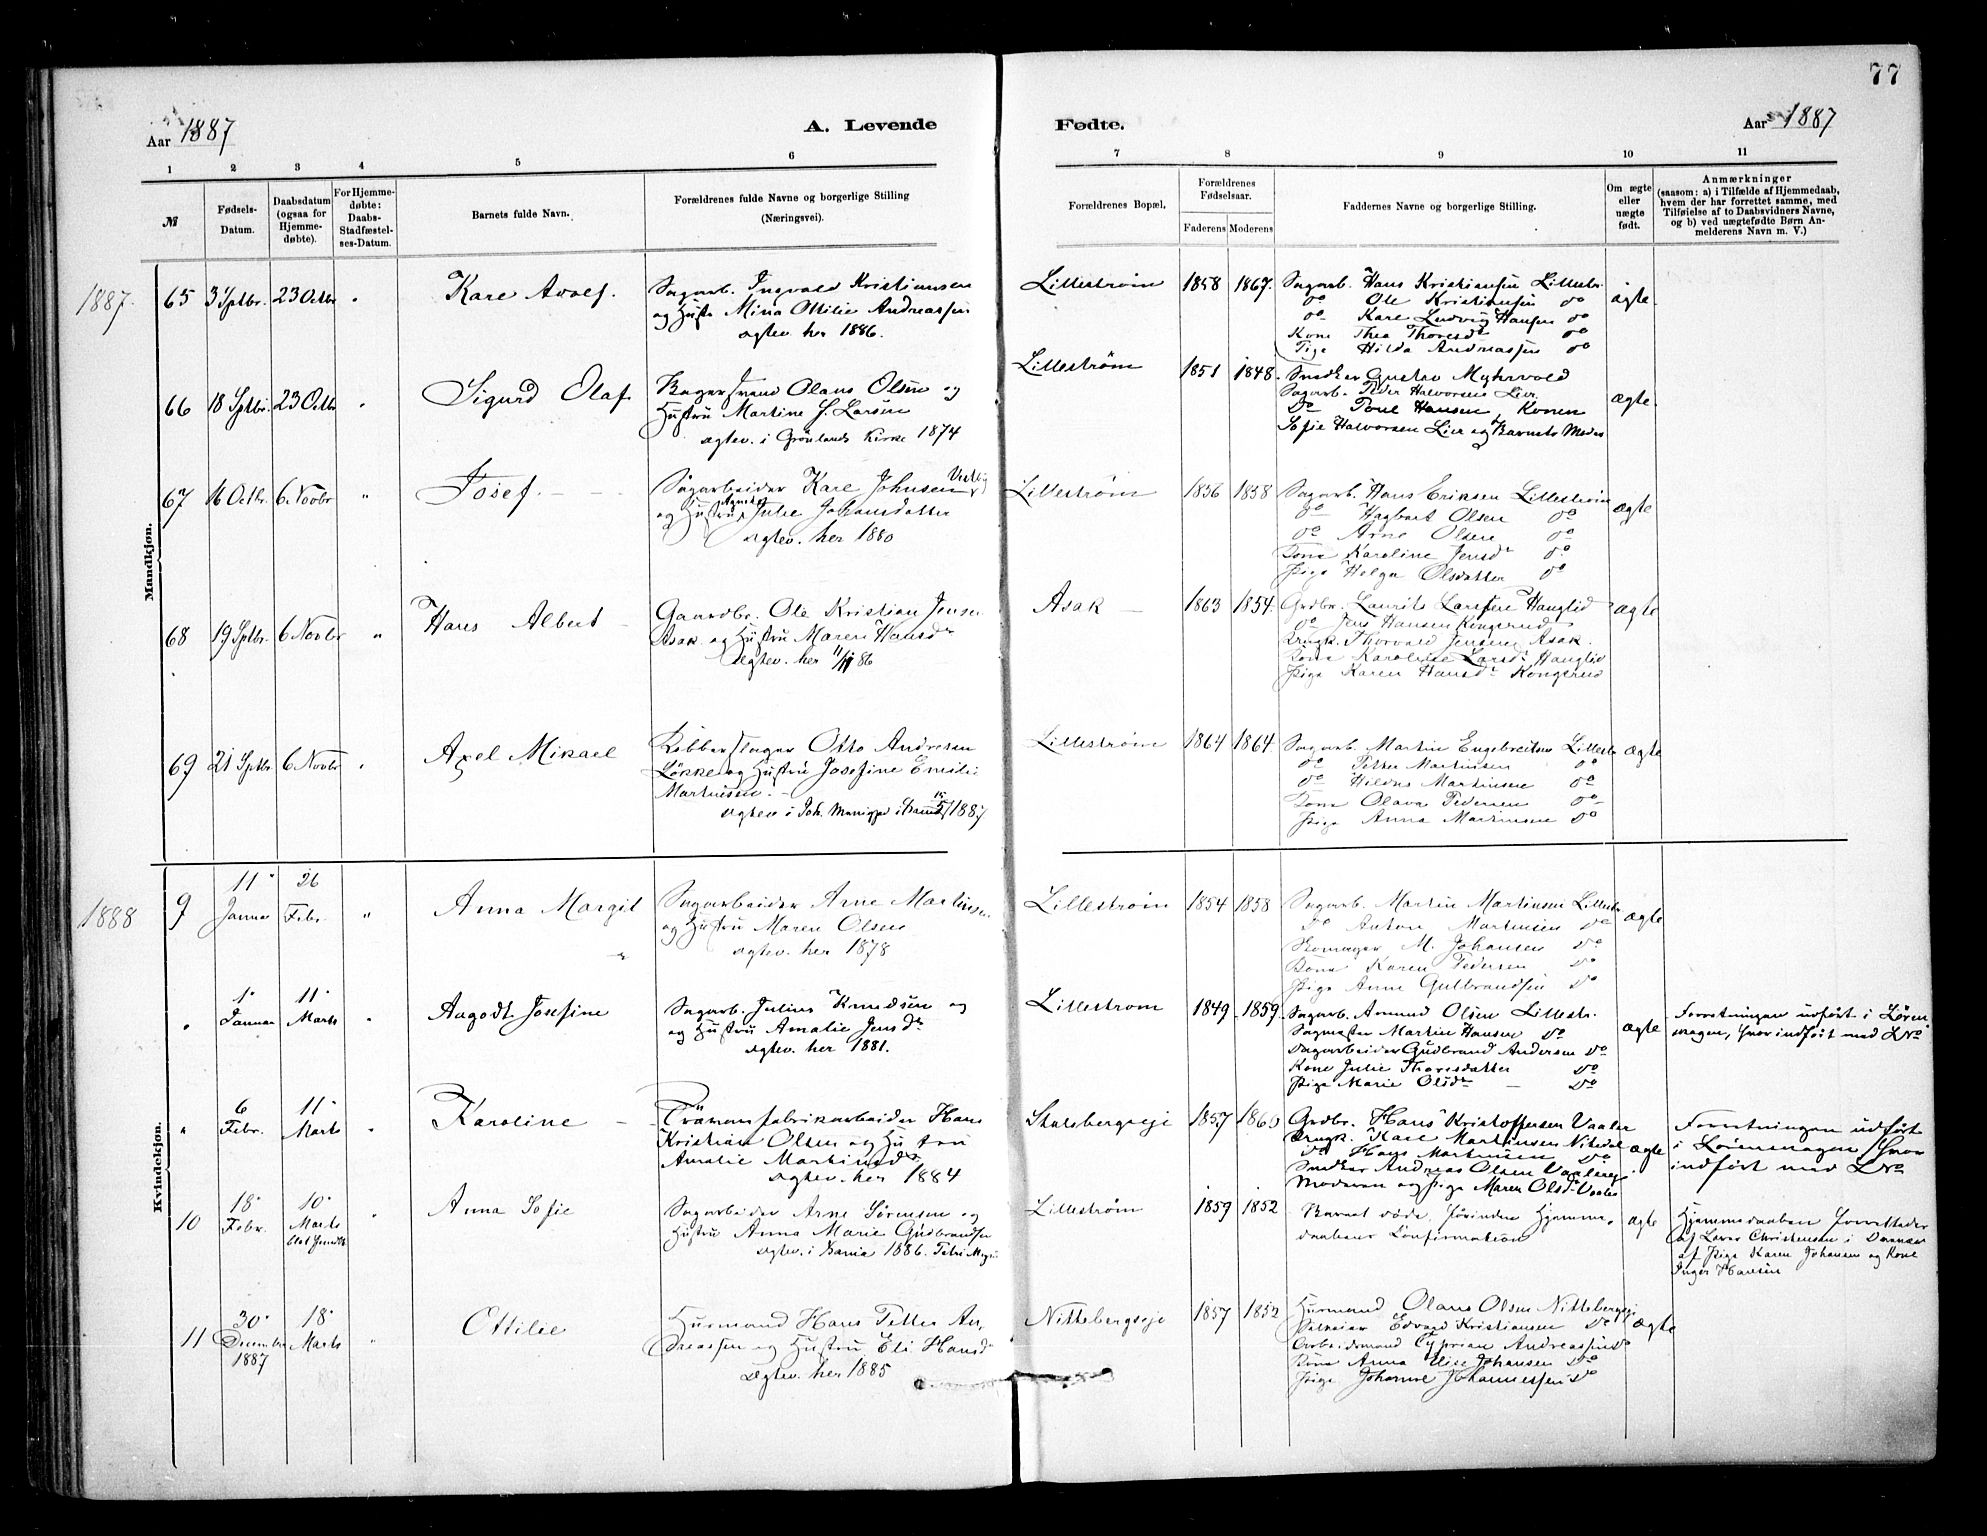 77
Aar 1887
A. Levende
Fødte.
Aar 1887
1 2 3 4 5 6 7 8 9 10 11
№
Fødsels-
Datum.
Daabsdatum
(ogsaa for
Hjemme-
døbte).
For Hjemme-
døbte:
Daabs-
Stadfæstel-
ses-Datum.
Barnets fulde Navn.
Forældrenes fulde Navne og borgerlige Stilling
(Næringsvei).
Forældrenes Bopæl.
Forældrenes
Fødselsaar.
Faderens Moderens
Faddernes Navne og borgerlige Stilling.
Om ægte
eller
uægte
født.
Anmærkninger
(saasom: a) i Tilfælde af Hjemmedaab,
hvem der har forrettet samme, med
Tilføielse af to Daabsvidners Navne,
og b) ved uægtefødte Børn An-
melderens Navn m. V.)
Mandkjøn.
1887.
65 3 Sptbr. 23 Octbr "
Karl Adolf.
Sagarb. Ingvald Kristiansen
og Hustr Mina Ottilie Andreassen
ægtev. her 1886.
Lillestrøm 1858 1867.
Sagarb. Hans Kristiansen Lillestr.
do Ole Kristiansen do
do Karl Ludvig Hansen do
Kone Thea Thoresdr do
Pige Hilda Andreassen do
ægte
66 18 Sptbr. 23 Octbr "
Sigurd Olaf
Bagersvend Olaus Olsen og
Hustru Martine J. Larsen
ægtev. i Grönlands Kirke 1874
Lillestrøm 1851 1848.
Snedker Gustav Myhrvold
Sagarb. Peder Halvorsen Lier
Do Poul Hansen, Konen
Sofie Halvorsen Lier og Barnets Moder
ægte.
67 16 Octbr. 6 Novbr "
Josef.
Sagarbeider Karl Johnsen Vestby
og Hustru Agnethe Julie Johansdatter
ægtev. her 1880
Lillestrøm 1856 1858
Sagarb. Hans Eriksen Lillestrøm
do Hagbart Olsen do
do Arne Olsen do
Kone Karoline Jensdr do
Pige Helga Olsdatter do
ægte
68 19 Sptbr. 6 Novbr "
Hans Albert
Gaardbr. Ole Kristian Jensen
Asak og Hustru Maren Hansdr
ægtev. her 11/11 86
Asak 1863 1854.
Grdbr. Laurits Larsen Hauglid
do Jens Hansen Kongsrud
Drugk. Thorvald Jensen Asak.
Kone Karoline Larsdr Hauglid
Pige Karen Hansdr Kongsrud
ægte
69 21 Sptbr 6 Novbr "
Axel Mikael
Kobberslager Otto Andresen
Løkke og Hustru Josefine Emilie
Martinsen.
ægtev i Joh. Menigh. i Kania 15/5 1887
Lillestrøm 1864 1864
Sagarb. Martin Engebretsen Lillestr
do Petter Martinsen do
do Hildus Martinsen do
Kone Olava Pedersen do
Pige Anna Martinsen do
ægte
Kvindekjøn.
1888
9 11 Januar 26 Febr. "
Anna Margit
Sagarbeider Arne Martinsen
og Hustru Maren Olsen
ægtev. her 1878
Lillestrøm 1854 1858
Sagarb. Martin Martinsen Lillestr
do Anton Martinsen do
Skomager M. Johansen do
Kone Karen Pedersen do
Pige Anne Gulbrandsen do
ægte
" 1 Januar 11 Marts "
Aagodt Josefine
Sagarb. Julius Knudsen og
og Hustru Amalie Jensdr
ægtev. her 1881.
Lillestrøm 1849 1859.
Sagarb. Amund Olsen Lillestr.
Sagmester Martin Hansen do
Sagarbeider Gudbrand Andersen do
Kone Julie Thoresdatter do
Pige Marie Olsdr do
ægte
Forretningen udført i Lören
skogen, hvor indført med LNo
" 6 Febr. 11 Marts "
Karoline
Trämassefabrikarbeider Hans
Kristian Olsen og Hustru
Amalie Martinsdr
ægtev. her 1884
Skalsbergseje 1857 1860
Grdbr. Hans Kristoffersen Vaaler
Drugk. Karl Martinsen Nitedal
do Hans Martinsen do
Snedker Andreas Olsen Vaalereje
Moderen og Pige Maren Olsdr Vaaler
ægte
Forretningen udført
i Lörenskogen, hvor
indført med LNo
10 18 Febr. 10 Marts "
Anna Sofie
Sagarbeider Arne Sörensen og
Hustru Anna Marie Gudbrandsen
ægtev. i Kania 1886.
Lillestrøm 1859 1852
Barnet døde forinden Hjemme-
daabens Confirmation
ægte
Hjemmedaaben forrettedes
af Lærer Christensen i Overvær
af Pige Karen Johansen og Kone
Inger Hansen
11 30 December 1887 18 Marts "
Ottilie
Husmand Hans Petter An-
dreassen og Hustru Eli Hansdr
ægtev. her 1885
Nittebergseje 1857 1852
Husmand Olaus Olsen Nittebergseje
Edvard Kristiansen do
Arbeidsmand Cyprian Andreassen do
Kone Anna Elise Johansen do
Pige Johanne Johannessen do
ægte